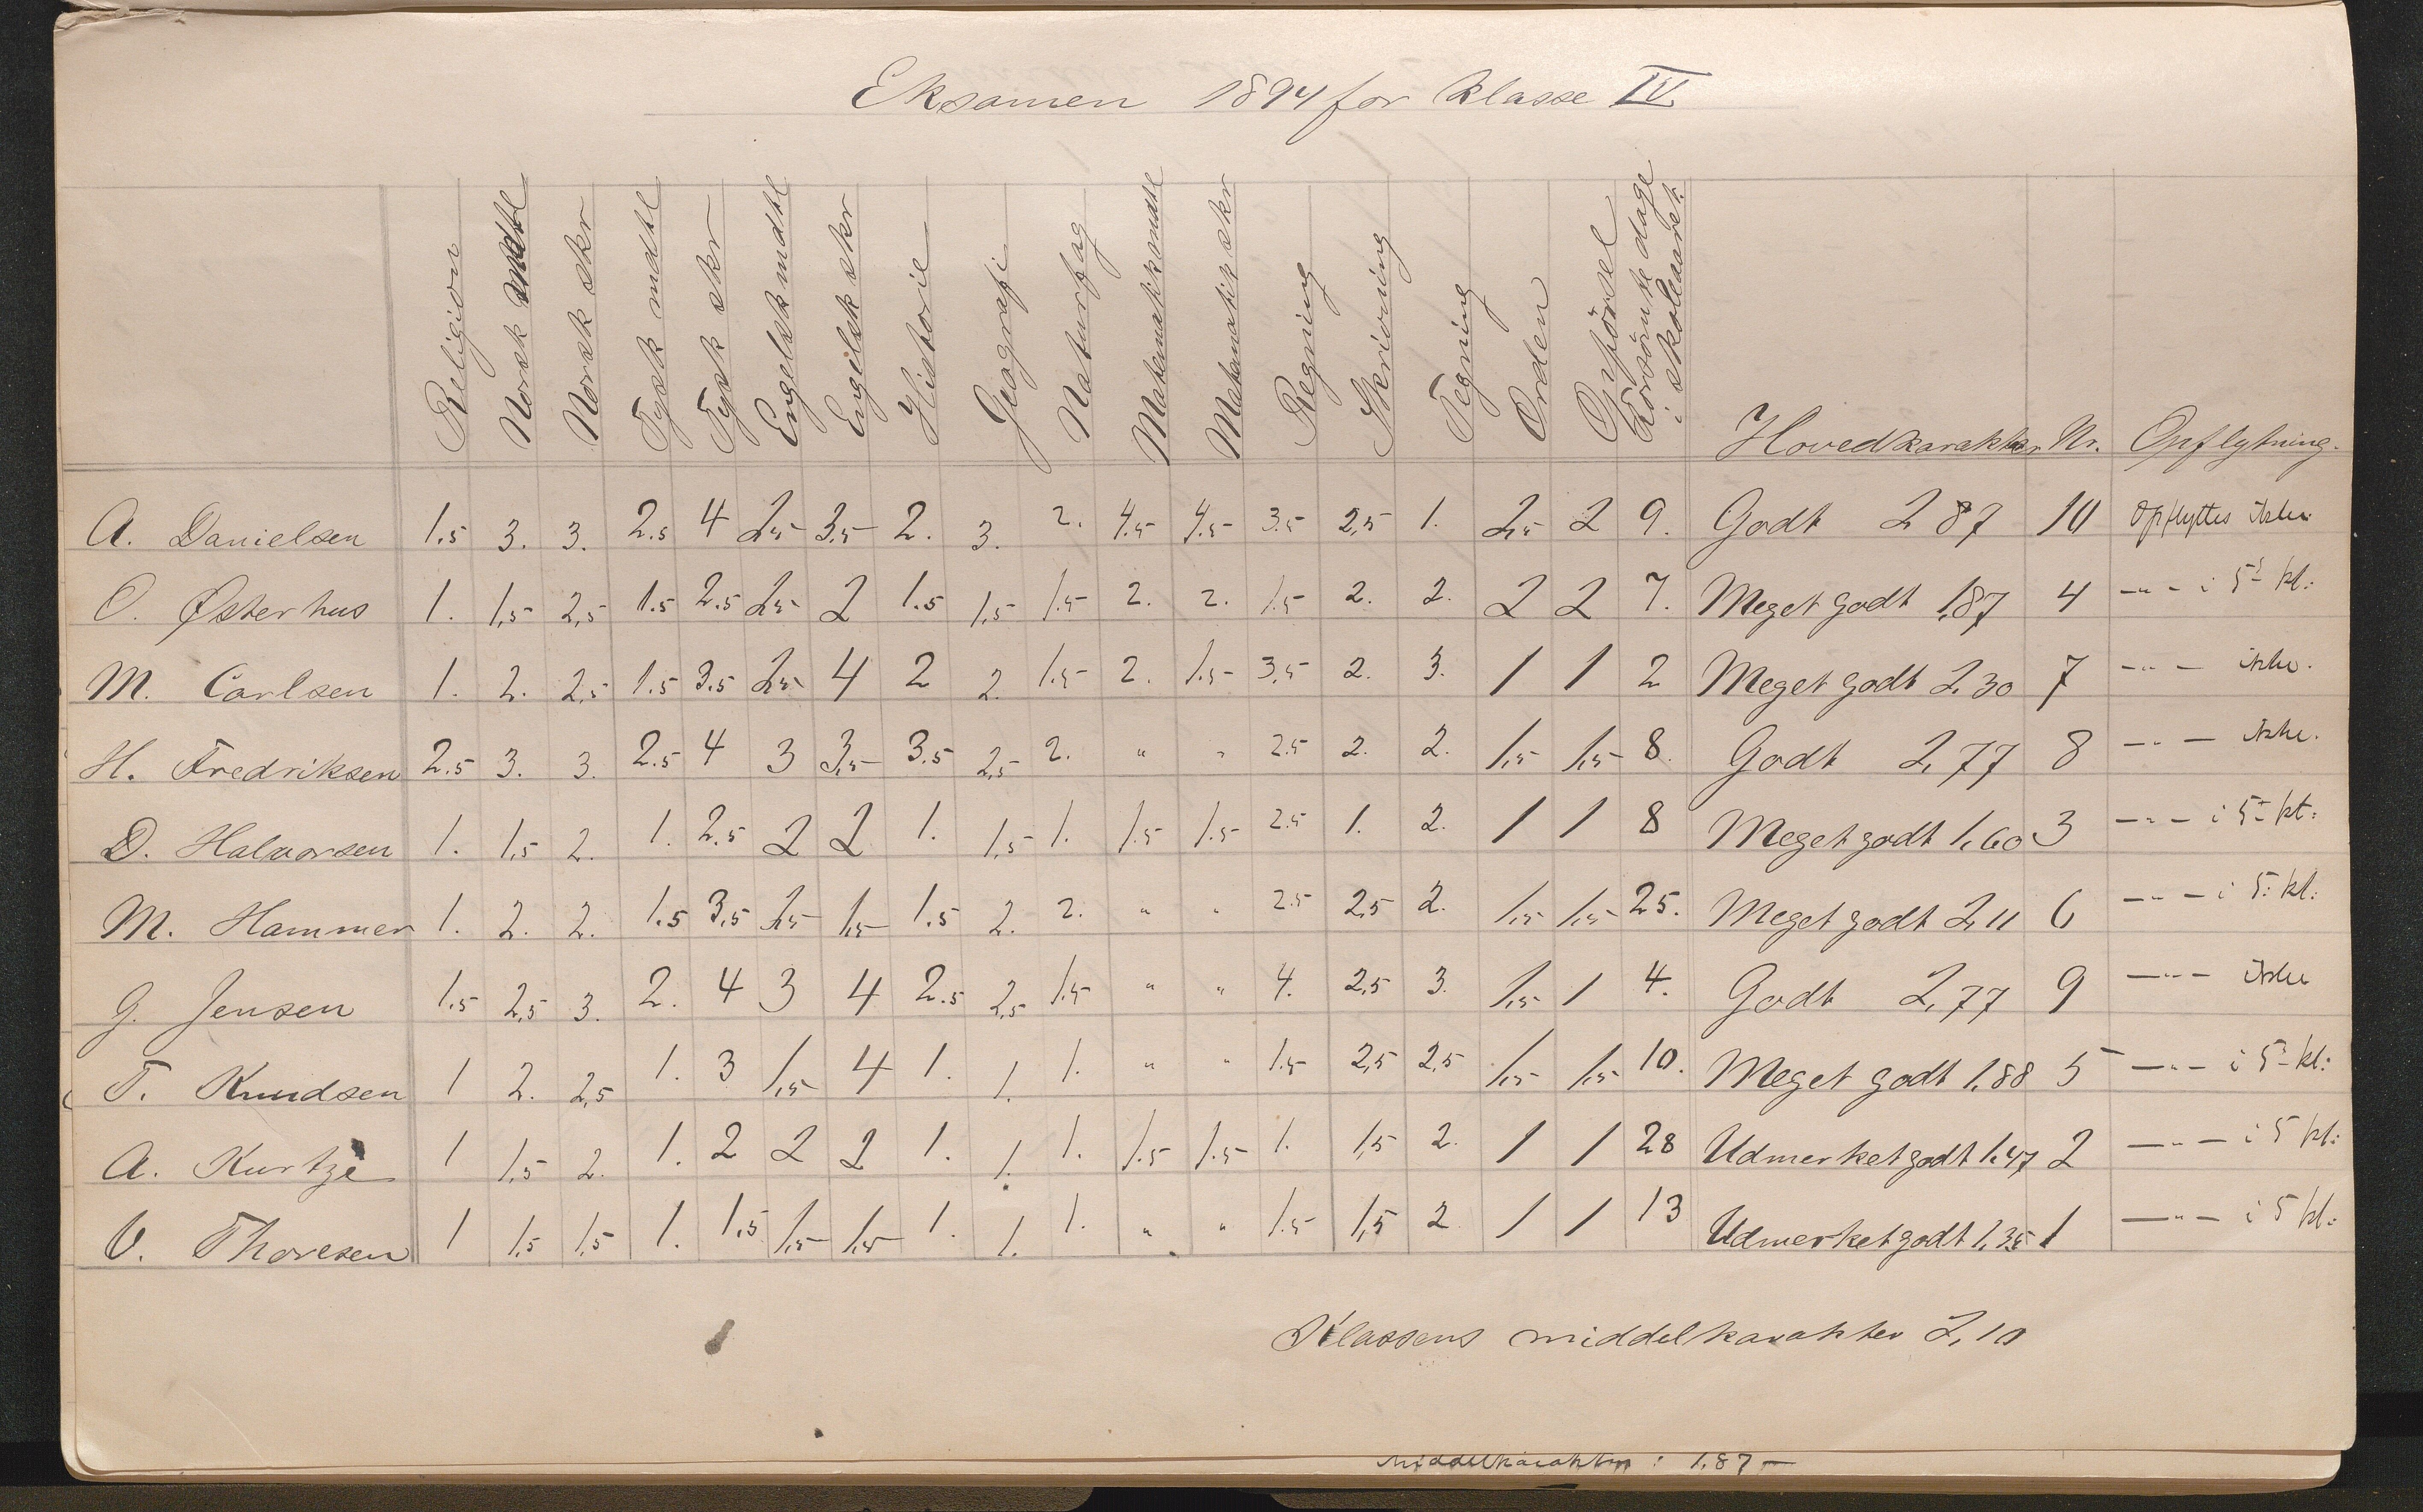 Eksamen 1894 for klasse IV.
Religion Norsk mdtl Norsk skr Tysk mdtl Tysk skr Engelsk mdtl Engelsk skr Historie Geografi Naturfag Matematikk mdtl Matematik skr Regning Skrivning Tegning Orden Opførsel Forsømte dage i skoleaaret. Hovedkarakter Nr. Opflytning.
A. Danielsen 1.5 3. 3. 2.5 4 2,5 3,5 2. 3. 2. 4.5 4.5 3.5 2,5 1. 2,5 2 9. Godt 2 87 10 Opflyttes ikke.
O. Østerhus 1. 1,5 2,5 1.5 2.5 2,5 2 1.5 1,5 1.5 2. 2. 1.5 2. 2. 2 2 7. Meget godt 1,87 4 —„— i 5 kl:
M. Carlsen 1. 2. 2,5 1.5 3.5 2,5 4 2 2. 1.5 2. 1.5 3,5 2. 3. 1 1 2 Meget godt 2,30 7 —„— ikke.
H. Fredriksen 2.5 3. 3. 2.5 4 3 3,5 3.5 2,5 2. „ „ 2.5 2. 2. 1,5 1,5 8. Godt 2,77 8 —„— ikke.
D. Halvorsen 1. 1,5 2. 1. 2.5 2 2 1. 1,5 1. 1.5 1.5 2.5 1. 2. 1 1 8 Meget godt 1,60 3 —„— i 5 kl:
M. Hammer 1. 2. 2. 1.5 3,5 2,5 1,5 1.5 2. 2. „ „ 2.5 2,5 2. 1,5 1,5 25. Meget godt 2,11 6 —„— i 5: kl:
G. Jensen 1.5 2,5 3. 2. 4 3 4 2.5 2,5 1.5 „ „ 4. 2,5 3. 1,5 1 4. Godt 2,77 9 —„— ikke
T. Knudsen 1 2. 2,5 1. 3 1,5 4 1. 1. 1. „ „ 1.5 2,5 2,5 1,5 1,5 10. Meget godt 1,88 5 —„— i 5 kl:
A. Kurtze 1 1,5 2. 1. 2 2 2 1. 1. 1. 1.5 1.5 1. 1,5 2. 1 1 28 Udmerket godt 1.47 2 —„— i 5 kl:
V. Thoresen 1 1,5 1,5 1. 1.5 1,5 1,5 1. 1. 1. „ „ 1.5 1,5 2 1 1 13 Udmerket godt 1,35 1 —„— i 5 kl:
Klassens middelkarakter 2,10
Middelkarakter: 1,87 —